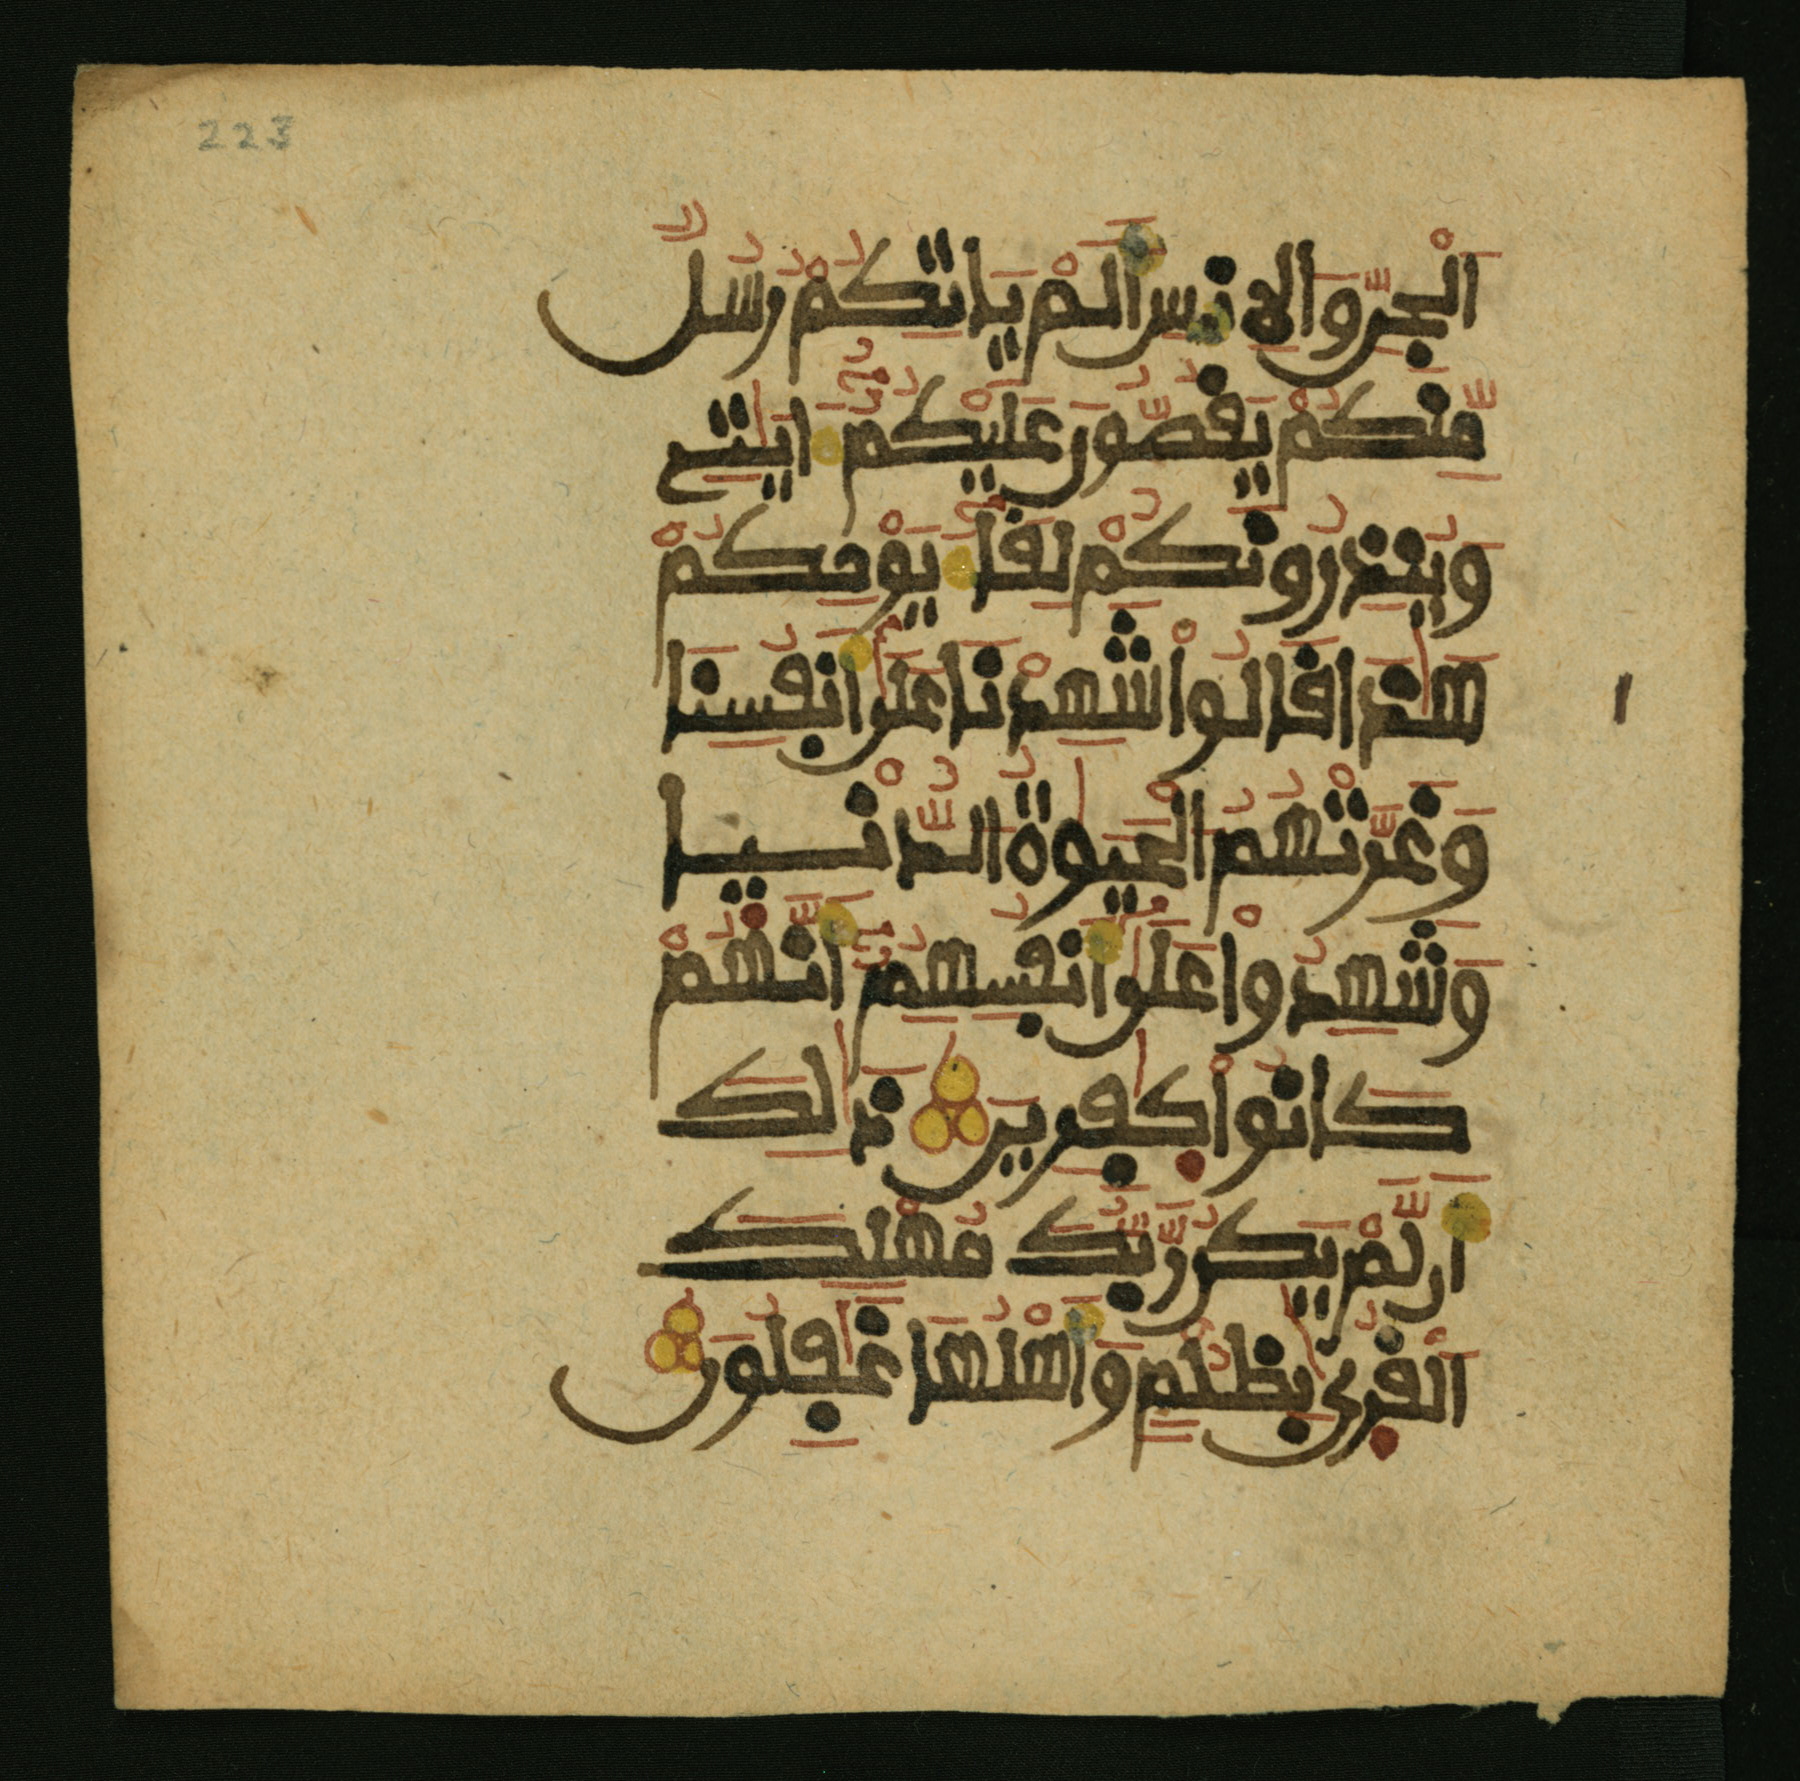 223
اَلْجِنِّ وَالِانسِ أَلَمْ يَاتِكُمْ رُسُلٌ
مِّنكُمْ يَقُصُّونَ عَلَيْكُمُ ءَايَٰتِے
وَيُنذِرُونَكُمْ لِقَآءَ يَوْمِكُمْ
هَٰذَا قَالُواْ شَهِدْنَا عَلَىٰ أَنفُسِنَا
وَغَرَّتْهُمُ اُلْحَيَوٰةُ اُلدُّنْيَا
وَشَهِدُواْ عَلَىٰ أَنفُسِهِمُ أَنَّهُمْ
كَانُواْ كَٰفِرِينَ ذَٰلِكَ
أَن لَّمْ يَكُن رَّبُّكَ مُهْلِكَ
اَلْقُرَىٰ بِظُلْمٍ وَأَهْلُهَا غَٰفِلُونَ